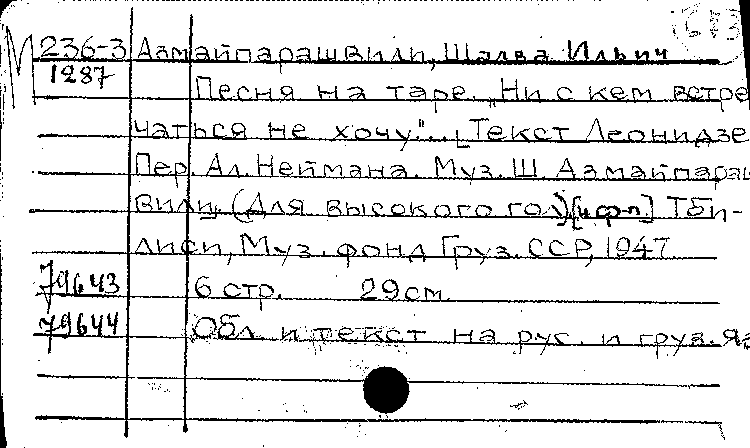 М 236-3 Азмайпарашвили, Шалва Ильич
1287
Песня на таре. „Ни с кем встре
чаться не хочу"... [Текст Леонидзе
Пер. Ал. Неймана. Муз. Ш. Азмайпараш
вили. (Для высокого гол) [и ф-п.] Тби-
лиси, Муз. фонд Груз. ССР, 1947
79643 6 стр. 29 см.
79644 Обл. и текст на рус. и груз. яз